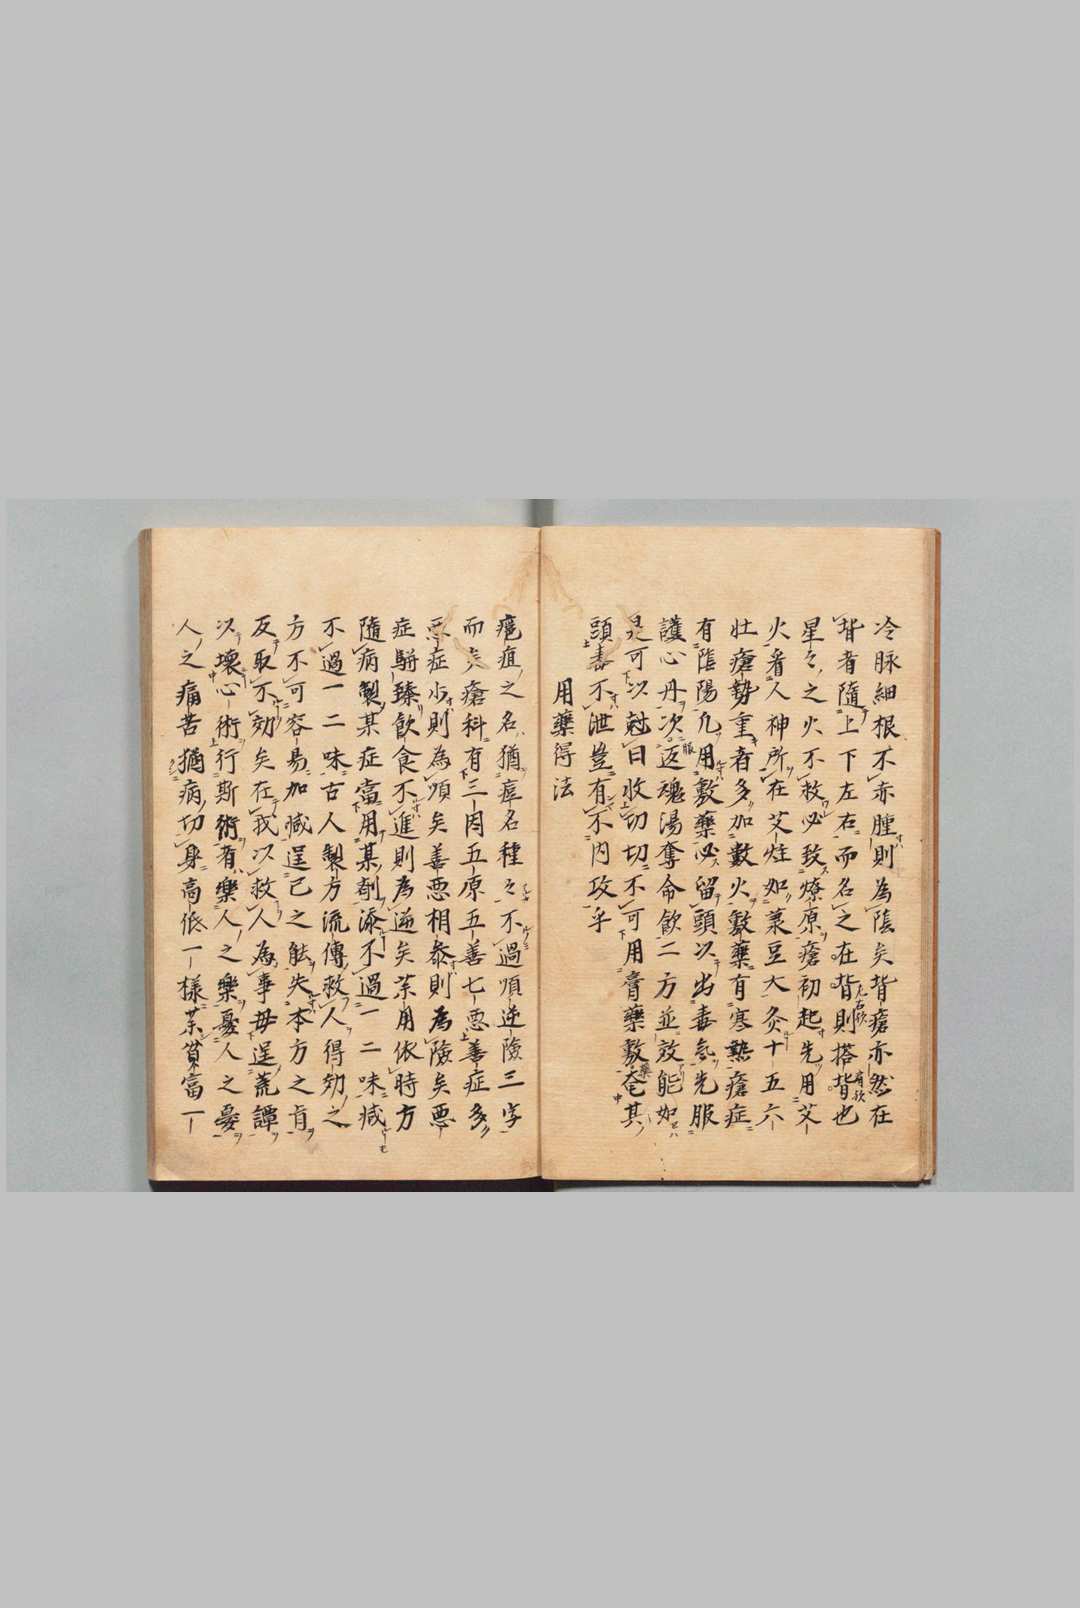 冷脉細根不赤腫則為陰矣背瘡亦然在
背者隨上下左右而名之在背則搭背也
星々之火不救必致燎原瘡初起先用艾
火看人神所在艾炷如菉豆大灸十五六
壮瘡勢重者多加數火敷藥有寒熱瘡症
有陰陽凢用敷藥必留頭以出毒氣先服
護心丹次返魂湯奪命飲二方並效能如
是可以尅日收切切不可用膏藥敷奄其
頭毒不泄豈有不内攻乎
用藥得法
瘡疽之名猶瘴名種々不過順逆險三字
而瘡科有三因五原五善七悪善症多
悪症少則為順矣善悪相參則為險矣悪
症駢臻飲食不進則為逆矣某用依時方
隨病製某症當用某劑添不過一二味减
不過一二味古人製方流傳救人得効之
方不可容易加减逞己之能失本方之旨
反取不効矣在我以救人為事毋逞荒譚
以壊心術行斯術者樂人之樂憂人之憂
人之痛苦猶病切身高低一樣某貧富一